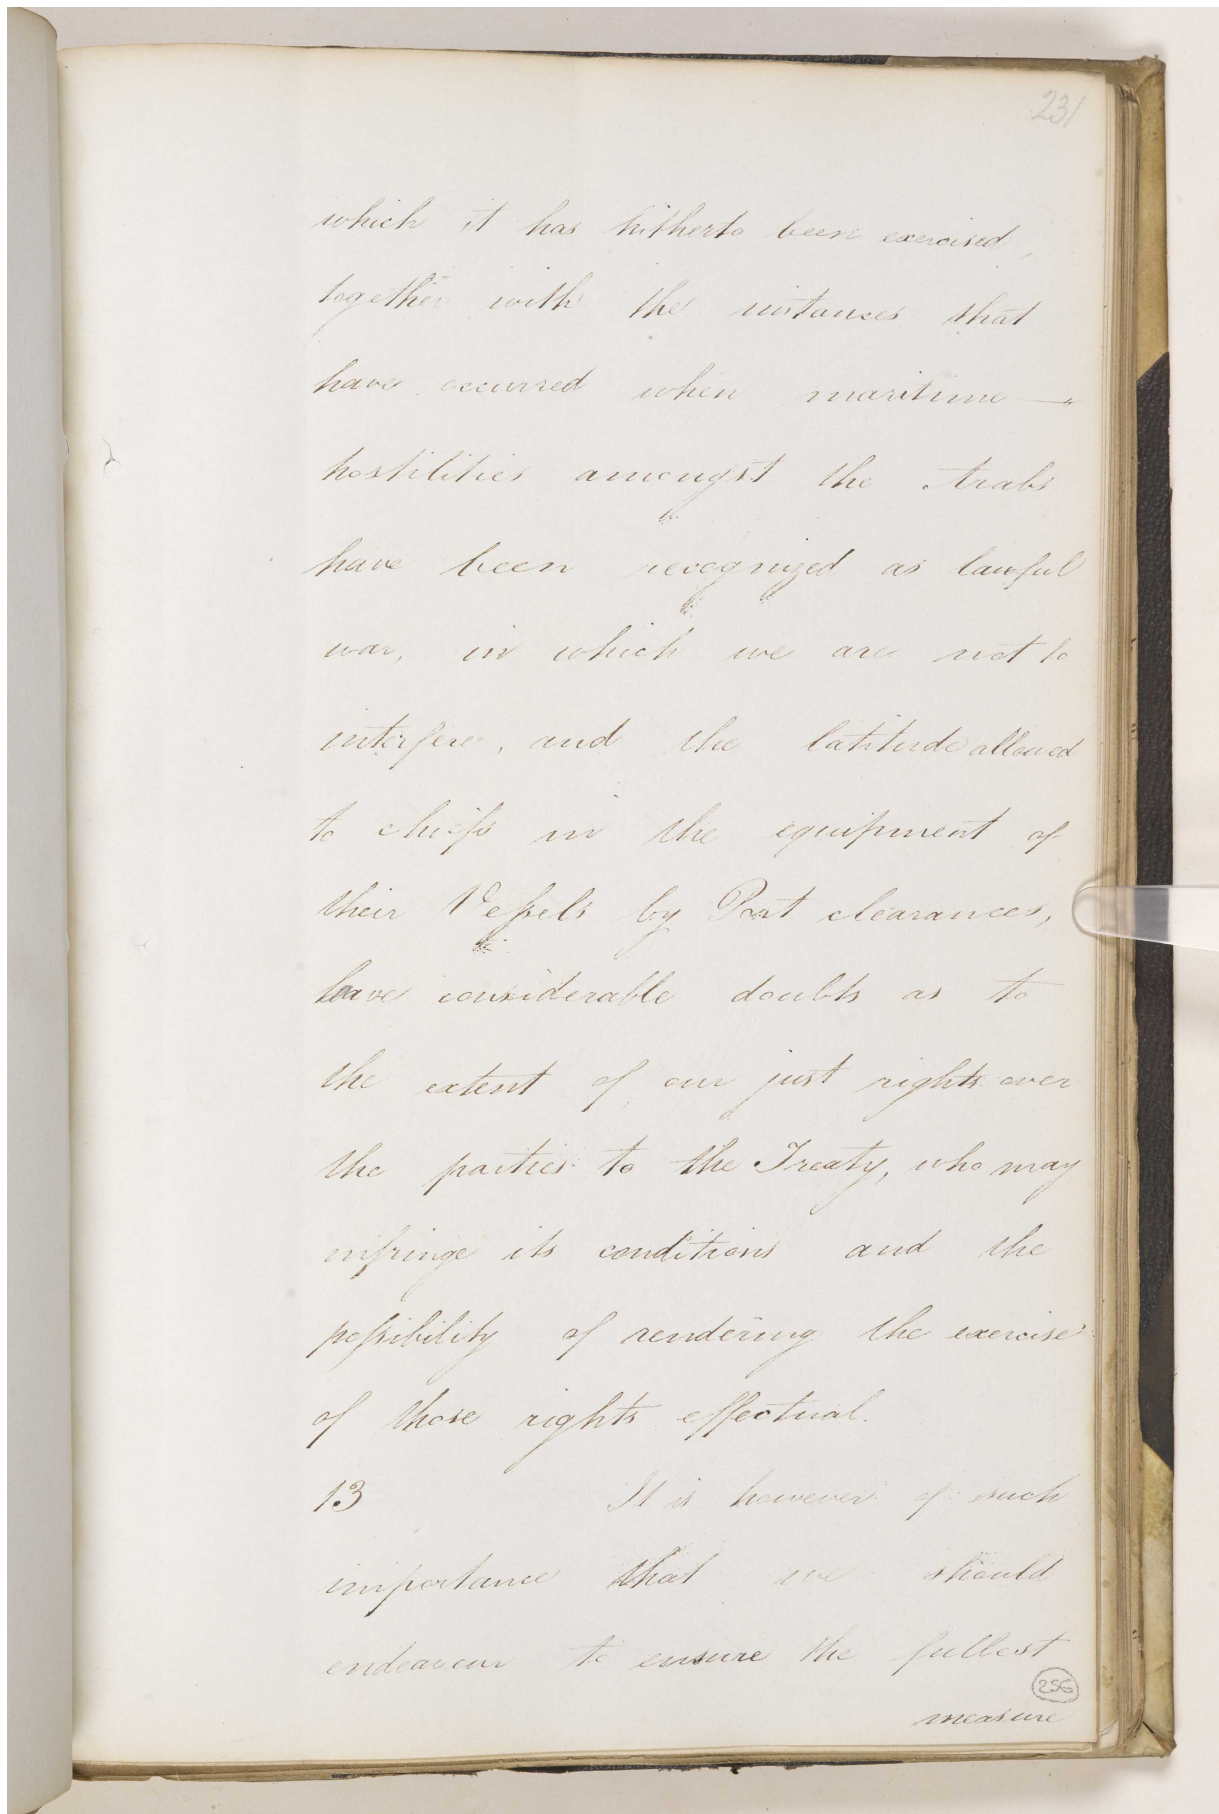 231
which it has hitherto been exercised,
together with the instances that
have occurred when maritime —
hostilities amongst the Arabs
have been recognized as lawful
war, in which we are not to
interfere, and the latitude allowed
to chiefs in the equipment of
their Vessels by Port clearances,
leave considerable doubts as to
the extent of our just rights over
the parties to the Treaty, who may
infringe its conditions and the
possibility of rendering the exercise
of those rights effectual.
13 It is however of such
importance that we should
endeavour to ensure the fullest
256
measure